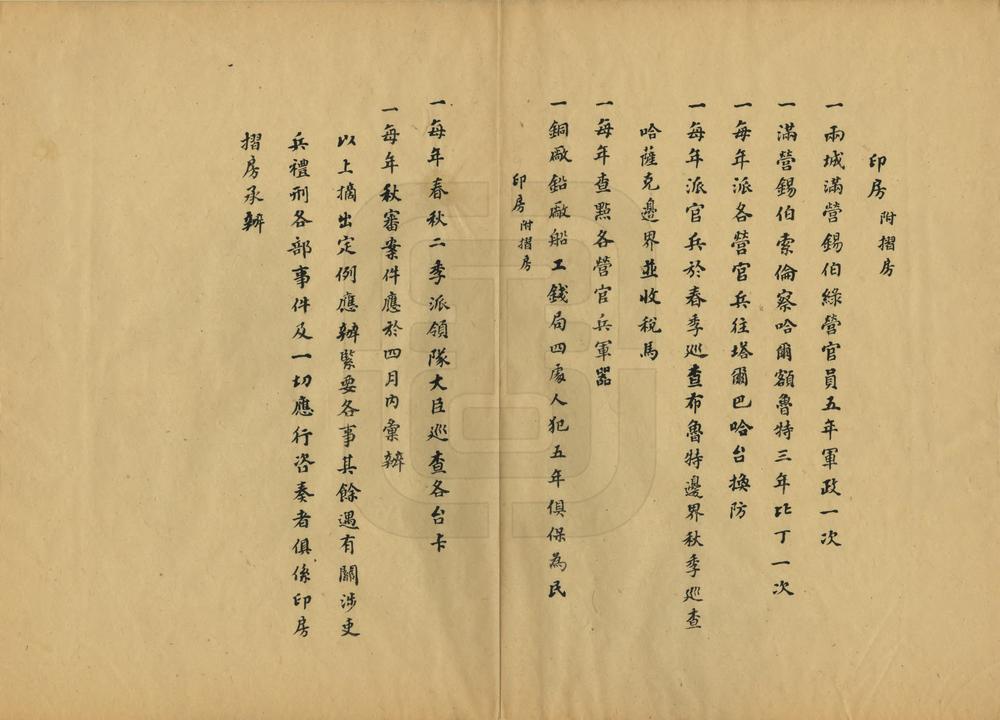 印房 附摺房
一兩城滿營錫伯綠營官員五年軍政一次
一滿營錫伯索倫察哈爾額魯特三年比丁一次
一每年派各營官兵往塔爾巴哈台換防
一每年派官兵於春季廵查布魯特邊界秋季廵查
哈薩克邊界並收稅馬
一每年查點各營官兵軍器
一銅廠鉛廠船工錢局四處人犯五年俱保為民
印房 附摺房
一每年春秋二季派領隊大臣廵查各台卡
一每年秋審案件應於四月內彙辦
以上摘出定例應辦緊要各事其餘遇有關涉吏
兵禮刑各部事件及一切應行咨奏者俱係印房
摺房承辦